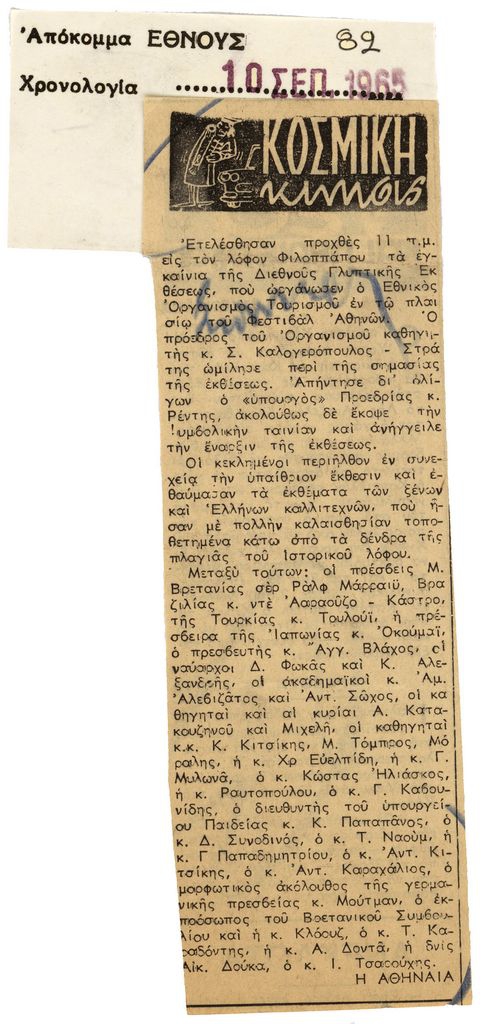 Ἀπόκομμα ΕΘΝΟΥΣ
82
Χρονολογία
10 ΣΕΠ. 1965
ΚΟΣΜΙΚΗ
κινησις
Ἐτελέσθησαν προχθὲς 11 π.μ.
εἰς τὸν λόφον Φιλοππάπου τὰ ἐγ-
καίνια τῆς Διεθνοῦς Γλυπτικῆς Ἐκ
θέσεως, ποὺ ὠργάνωσεν ὁ Ἐθνικὸς
Ὀργανισμὸς Τουρισμοῦ ἐν τῷ πλαι
σίῳ τοῦ Φεστιβὰλ Ἀθηνῶν. Ὁ
πρόεδρος τοῦ Ὀργανισμοῦ καθηγη-
τὴς κ. Σ. Καλογερόπουλος - Στρά
της ὡμίλησε περὶ τῆς σημασίας
τῆς ἐκθέσεως. Ἀπήντησε δι' ὀλί-
γων ὁ «ὑπουργὸς» Προεδρίας κ.
Ρέντης, ἀκολούθως δὲ ἔκοψε τὴν
συμβολικὴν ταινίαν καὶ ἀνήγγειλε
τὴν ἔναρξιν τῆς ἐκθέσεως.
Οἱ κεκλημένοι περιῆλθον ἐν συνε-
χείᾳ τὴν ὑπαίθριον ἔκθεσιν καὶ ἐ-
θαύμασαν τὰ ἐκθέματα τῶν ξένων
καὶ Ἑλλήνων καλλιτεχνῶν, ποὺ ἦ-
σαν μὲ πολλὴν καλαισθησίαν τοπο-
θετημένα κάτω ἀπὸ τὰ δένδρα τῆς
πλαγιᾶς τοῦ ἱστορικοῦ λόφου.
Μεταξὺ τούτων: οἱ πρέσβεις Μ.
Βρετανίας σὲρ Ράλφ Μάρραιϋ, Βρα
ζιλίας κ. ντὲ Ἀαραοῦζο - Κάστρο,
τῆς Τουρκίας κ. Τουλούϊ, ἡ πρέ-
σβειρα τῆς Ἰαπωνίας κ. Ὀκούμαϊ,
ὁ πρεσβευτὴς κ. Ἄγγ. Βλάχος, οἱ
ναύαρχοι Δ. Φωκᾶς καὶ Κ. Ἀλε-
ξανδρῆς, οἱ ἀκαδημαϊκοὶ κ. Ἀμ.
Ἀλεβιζᾶτος καὶ Ἀντ. Σῶχος, οἱ κα
θηγηταὶ καὶ αἱ κυρίαι Α. Κατα-
κουζηνοῦ καὶ Μιχελῆ, οἱ καθηγηταὶ
κ.κ. Κ. Κιτσίκης, Μ. Τόμπρος, Μό
ραλης, ἡ κ. Χρ Εὐελπίδη, ἡ κ. Γ.
Μυλωνᾶ, ὁ κ. Κώστας Ἠλιάσκος,
ἡ κ. Ραυτοπούλου, ὁ κ. Γ. Καβου-
νίδης, ὁ διευθυντὴς τοῦ ὑπουργεί-
ου Παιδείας κ. Κ. Παπαπᾶνος, ὁ
κ. Δ. Συνοδινός, ὁ κ. Τ. Ναούμ, ἡ
κ. Γ Παπαδημητρίου, ὁ κ. Ἀντ. Κι-
τσίκης, ὁ κ. Ἀντ. Καραχάλιος, ὁ
μορφωτικὸς ἀκόλουθος τῆς γερμα-
νικῆς πρεσβείας κ. Μούτμαν, ὁ ἐκ-
πρόσωπος τοῦ Βρετανικοῦ Συμβου-
λίου καὶ ἡ κ. Κλόουζ, ὁ κ. Τ. Κα-
ραδόντης, ἡ κ. Α. Δοντᾶ, ἡ δνὶς
Αἰκ. Δούκα, ὁ κ. Ι. Τσαρούχης.
Η ΑΘΗΝΑΙΑ